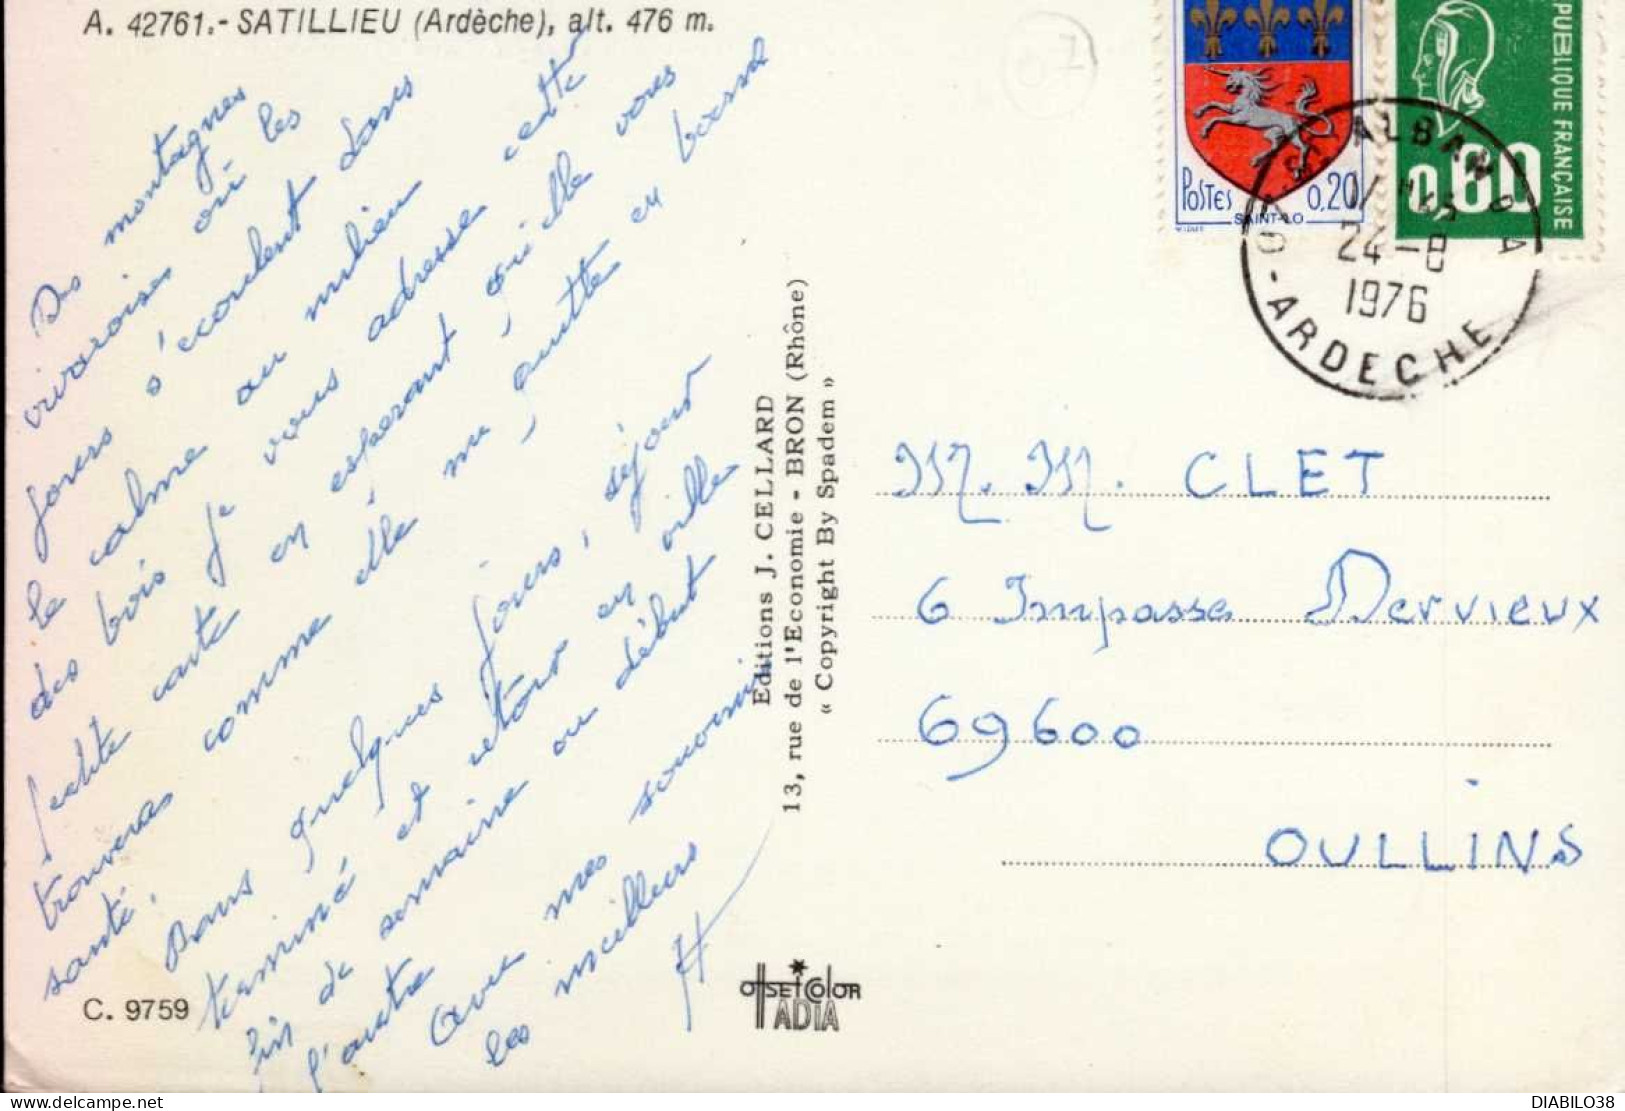 A. 42761.- SATILLIEU (Ardèche), alt. 476 m.
Des montagnes
vivaroises où les
jours s'écoulent dans
le calme au milieu
des bois je vous adresse cette
petite carte en espérant qu'elle vous
trouvera comme elle m'quitte en bonne
santé.
Dans quelques jours, séjour
terminé et retour en ville
fin de semaine ou début
l'autre
Avec mes souvenirs
les meilleurs
C. 9759
Editions J. CELLARD
13, rue de l'Economie - BRON (Rhône)
« Copyright By Spadem »
OffsetColor
IADIA
POSTES 0,20
SAINT-LO
RÉPUBLIQUE FRANÇAISE
0,60
ALBAN
24 -8
1976
ARDECHE
M. M. CLET
6 Impasse Dervieux
69600
OULLINS
DIABILO38